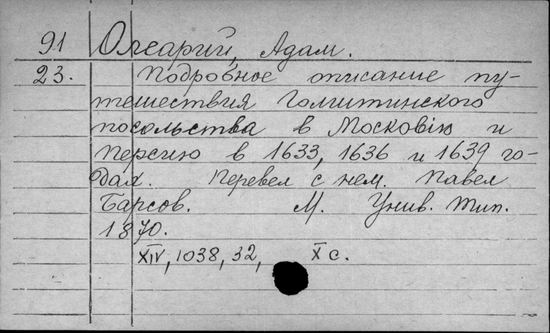 91 Олеарий, Адам.
23. Подробное описание пу-
тешествия Голштинского
посольства в Московію и
Персию в 1633, 1636 и 1639 го-
дах. Перевел с нем. Павел
Барсов. М. Унив. тип.
1870.
XIV, 1038, 32, X с.